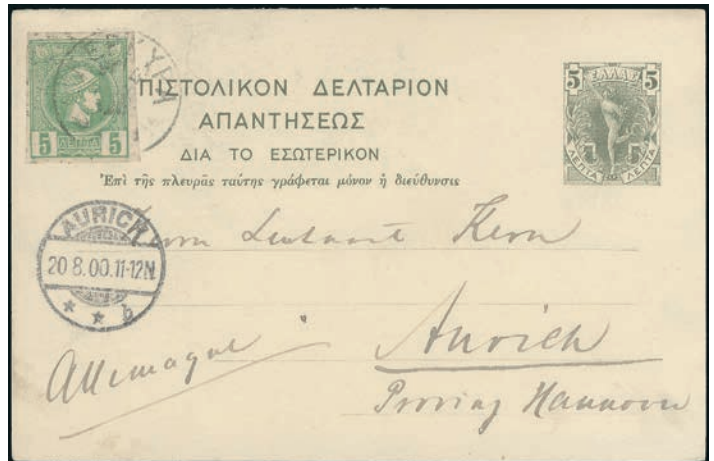 ΚΕΡΚΥΡΑ
5 ΛΕΠΤΑ 5
ΕΠΙΣΤΟΛΙΚΟΝ ΔΕΛΤΑΡΙΟΝ
ΑΠΑΝΤΗΣΕΩΣ
ΔΙΑ ΤΟ ΕΣΩΤΕΡΙΚΟΝ
Ἐπὶ τῆς πλευρᾶς ταύτης γράφεται μόνον ἡ διεύθυνσις
5 ΕΛΛΑΣ 5
ΛΕΠΤΑ ΛΕΠΤΑ
AURICH
20 8.00.11-12N
* * b
Herrn Leutnant Kern
Aurich
Allemagne
Provinz Hannover